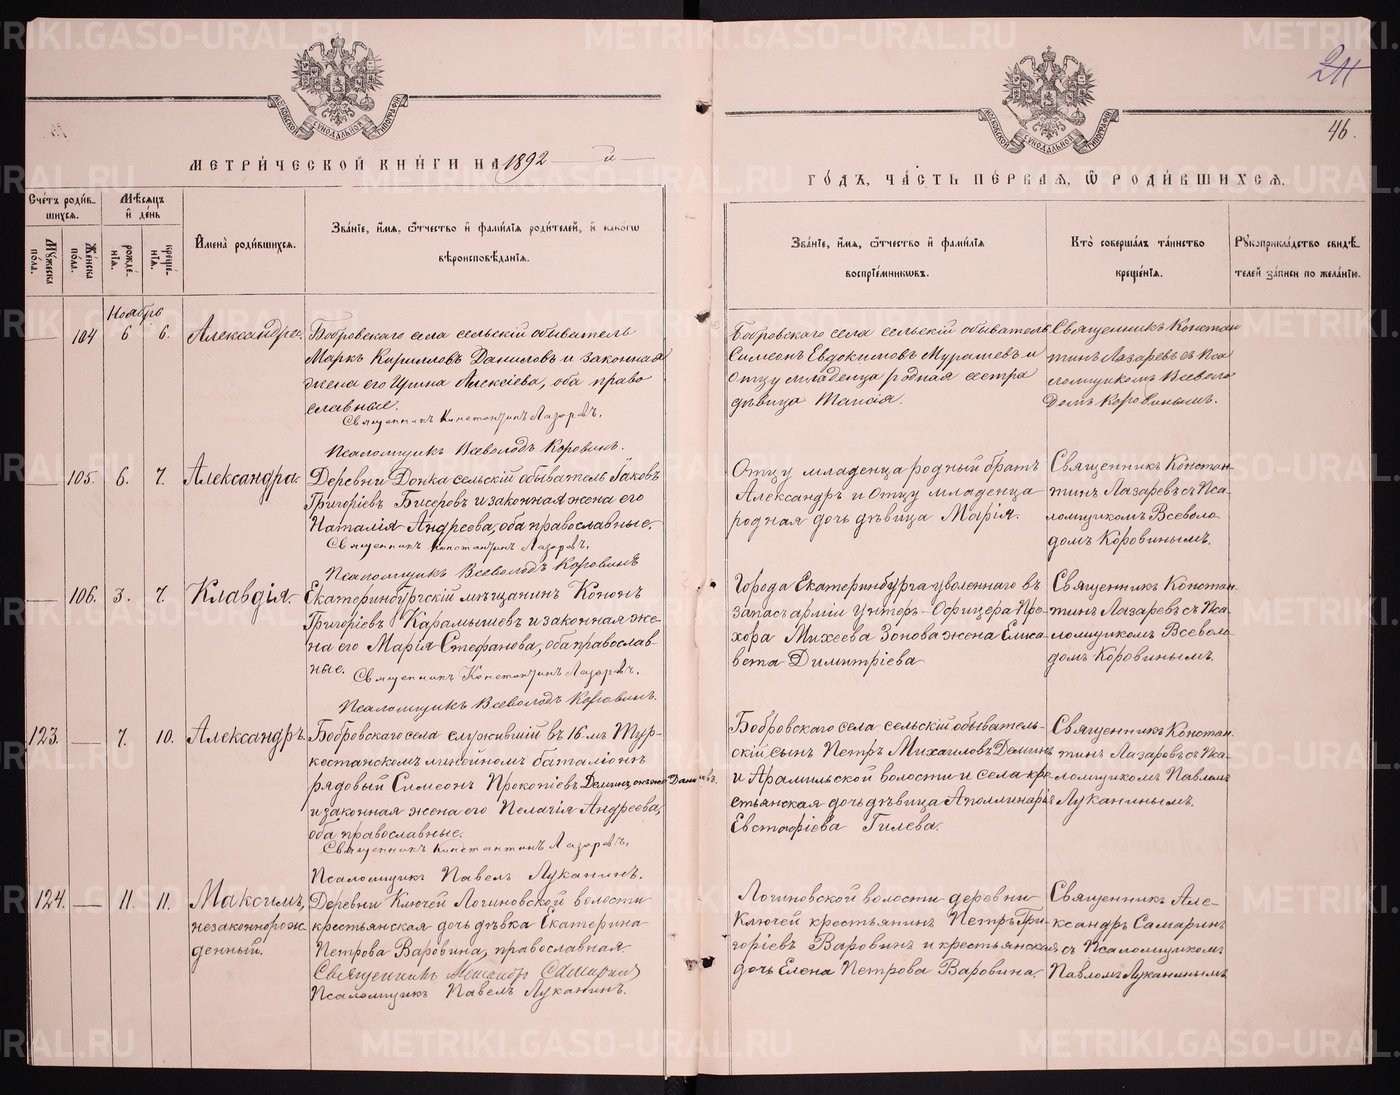 24
46.
МОСКОВСКОЙ СѴНОДАЛЬНОЙ ТИПОГРАФІИ
МОСКОВСКОЙ СѴНОДАЛЬНОЙ ТИПОГРАФІИ
МЕТРИ́ЧЕСКОЙ КНИ́ГИ НА 1892 — й —
ГО́ДЪ, ЧА́СТЬ ПЕ́РВАЯ, Ѡ҆ РОДИ́ВШИХСЯ.
Сче́тъ роди́в-
шихся.
Мѣ́сяцъ
и҆ де́нь
Мꙋ́жеска
по́ла.
Же́нска
по́ла.
рожде́-
нїя.
креще́-
нїя.
И҆мена̀ роди́вшихся.
Зва́нїе, и҆́мя, ѻ҆́тчество и҆ фами́лїя роди́телей, и҆ како́гѡ
вѣроисповѣ́данїя.
Зва́нїе, и҆́мя, ѻ҆́тчество и҆ фами́лїя
воспрїе́мниковъ.
Кто̀ соверша́лъ та́инство
креще́нїя.
Рꙋкоприкла́дство свидѣ́-
телей за́писи по жела́нїю.
Ноябрь
— 104 6 6. Александра.
Бобровскаго села сельскій обыватель
Маркъ Кирилловъ Даниловъ и законная
жена его Ирина Алексіева, оба право
славные.
Священникъ Константинъ Лазаревъ.
Псаломщикъ Всеволодъ Коровинъ.
Бобровскаго села сельскій обыватель
Симеонъ Евдокимовъ Мурашевъ и
отцу младенца родная сестра
дѣвица Таисія.
Священникъ Констан
тинъ Лазаревъ съ Пса
ломщикомъ Всеволо
домъ Коровинымъ.
— 105. 6. 7. Александра.
Деревни Донка сельскій обыватель Іаковъ
Григоріевъ Бисеровъ и законная жена его
Наталія Андреева, оба православные.
Священникъ Константинъ Лазаревъ.
Псаломщикъ Всеволодъ Коровинъ
Отцу младенца родный братъ
Александръ и отцу младенца
родная дочь дѣвица Марія.
Священникъ Констан-
тинъ Лазаревъ съ Пса-
ломщикомъ Всеволо
домъ Коровинымъ.
— 106. 3. 7. Клавдія.
Екатеринбургскій мѣщанинъ Кононъ
Григоріевъ Карамышевъ и законная же-
на его Марія Стефанова, оба православ-
ные.
Священникъ Константинъ Лазаревъ.
Псаломщикъ Всеволодъ Коровинъ.
Города Екатеринбурга уволеннаго въ
запасъ арміи Унтеръ-Офицера Про-
хора Михеева Зонова жена Елиса-
вета Димитріева
Священникъ Констан-
тинъ Лазаревъ съ Пса-
ломщикомъ Всеволо-
домъ Коровинымъ.
123. — 7. 10. Александръ.
Бобровскаго села служившій въ 16-мъ Тур-
кестанскомъ линейномъ баталіонѣ
рядовый Симеонъ Прокопіевъ Деминъ, онъ же Даниловъ.
и законная жена его Пелагія Андреева,
оба православные.
Священникъ Константинъ Лазаревъ.
Псаломщикъ Павелъ Луканинъ.
Бобровскаго села сельскій обыватель-
скій сынъ Петръ Михаиловъ Деминъ
и Арамильской волости и села кре-
стьянская дочь дѣвица Аполлинарія
Евстафіева Гилева.
Священникъ Констан
тинъ Лазаревъ съ Пса-
ломщикомъ Павломъ
Луканинымъ.
124. — 11. 11. Максимъ,
незаконнорож-
денный.
Деревни Ключей Логиновской волости
крестьянская дочь дѣвка Екатерина
Петрова Варовина, православная.
Священникъ Александръ Самаринъ
Псаломщикъ Павелъ Луканинъ.
Логиновской волости деревни
Ключей крестьянинъ Петръ Гри-
горіевъ Варовинъ и крестьянская
дочь Елена Петрова Варовина.
Священникъ Але-
ксандръ Самаринъ
съ Псаломщикомъ
Павломъ Луканинымъ
METRIKI.GASO-URAL.RU